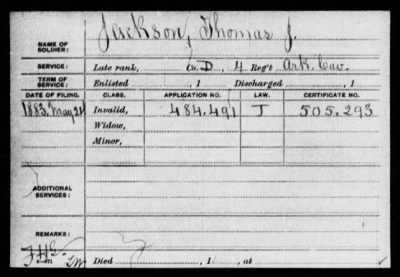 NAME OF SOLDIER: Jackson, Thomas J.
SERVICE: Late rank, Co. D, 4 Reg't Ark. Cav.
TERM OF SERVICE: Enlisted , 1 Discharged , 1
DATE OF FILING. CLASS. APPLICATION NO. LAW. CERTIFICATE NO.
1883. May 21 Invalid, 484.491 J 505.293
Widow,
Minor,
ADDITIONAL SERVICES:
REMARKS:
Died , 1 , at